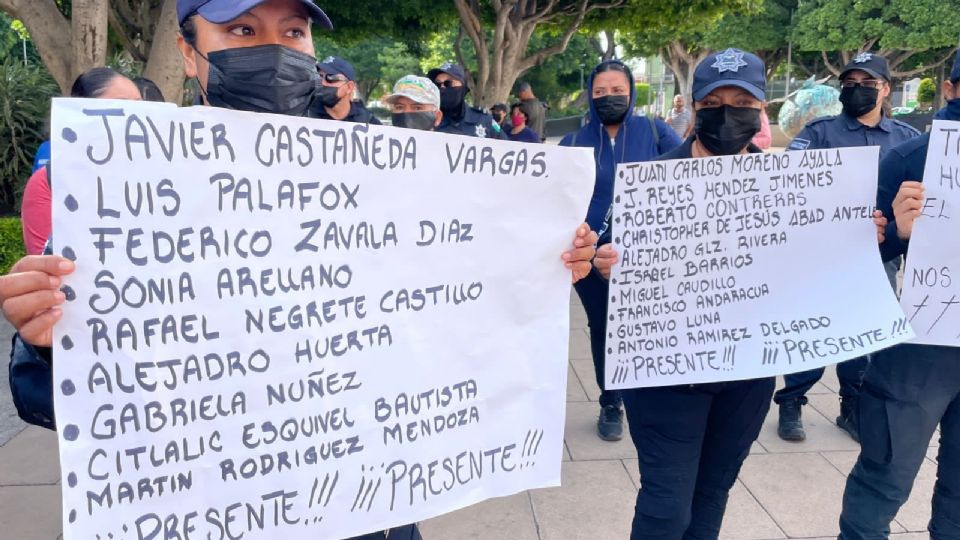 • JAVIER CASTAÑEDA VARGAS.
• LUIS PALAFOX
• FEDERICO ZAVALA DIAZ
• SONIA ARELLANO
• RAFAEL NEGRETE CASTILLO
• ALEJADRO HUERTA
• GABRIELA NUÑEZ
• CITLALIC ESQUIVEL BAUTISTA
• MARTIN RODRIGUEZ MENDOZA
¡¡¡PRESENTE!!! ¡¡¡PRESENTE!!!
• JUAN CARLOS MORENO AYALA
• J. REYES MENDEZ JIMENES
• ROBERTO CONTRERAS
• CHRISTOPHER DE JESÚS ABAD ANTELE
• ALEJANDRO GLZ. RIVERA
• ISRAEL BARRIOS
• MIGUEL CAUDILLO
• FRANCISCO ANDARACUA
• GUSTAVO LUNA
• ANTONIO RAMIREZ DELGADO
¡¡¡PRESENTE!!! ¡¡¡PRESENTE!!!
EL
NOS